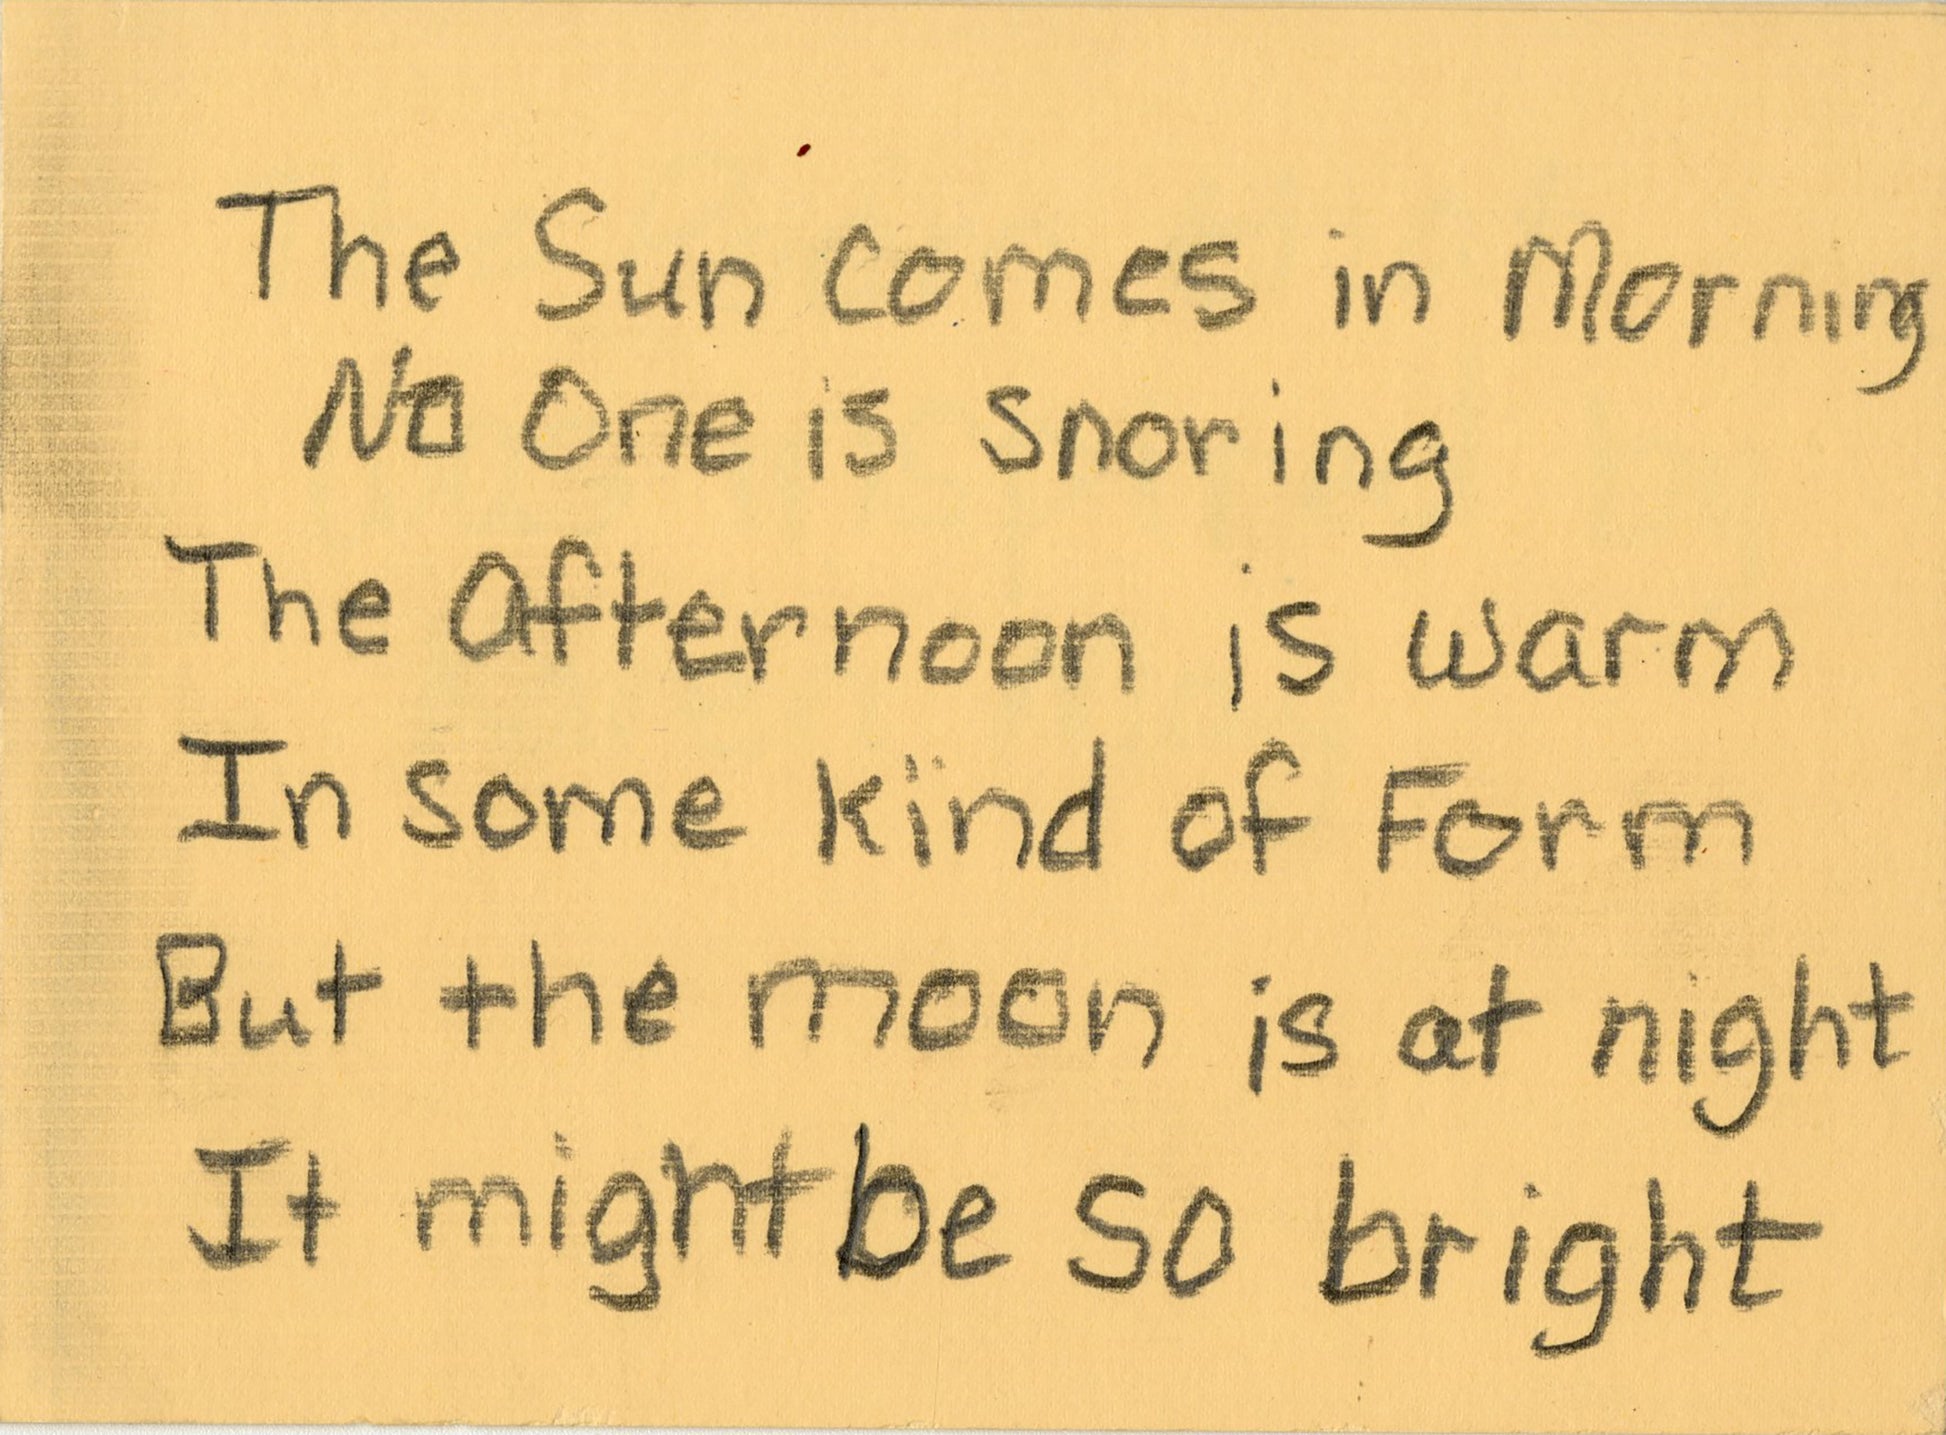 The Sun comes in Morning
No One is snoring
The Afternoon is warm
In some kind of Form
But the moon is at night
It might be so bright